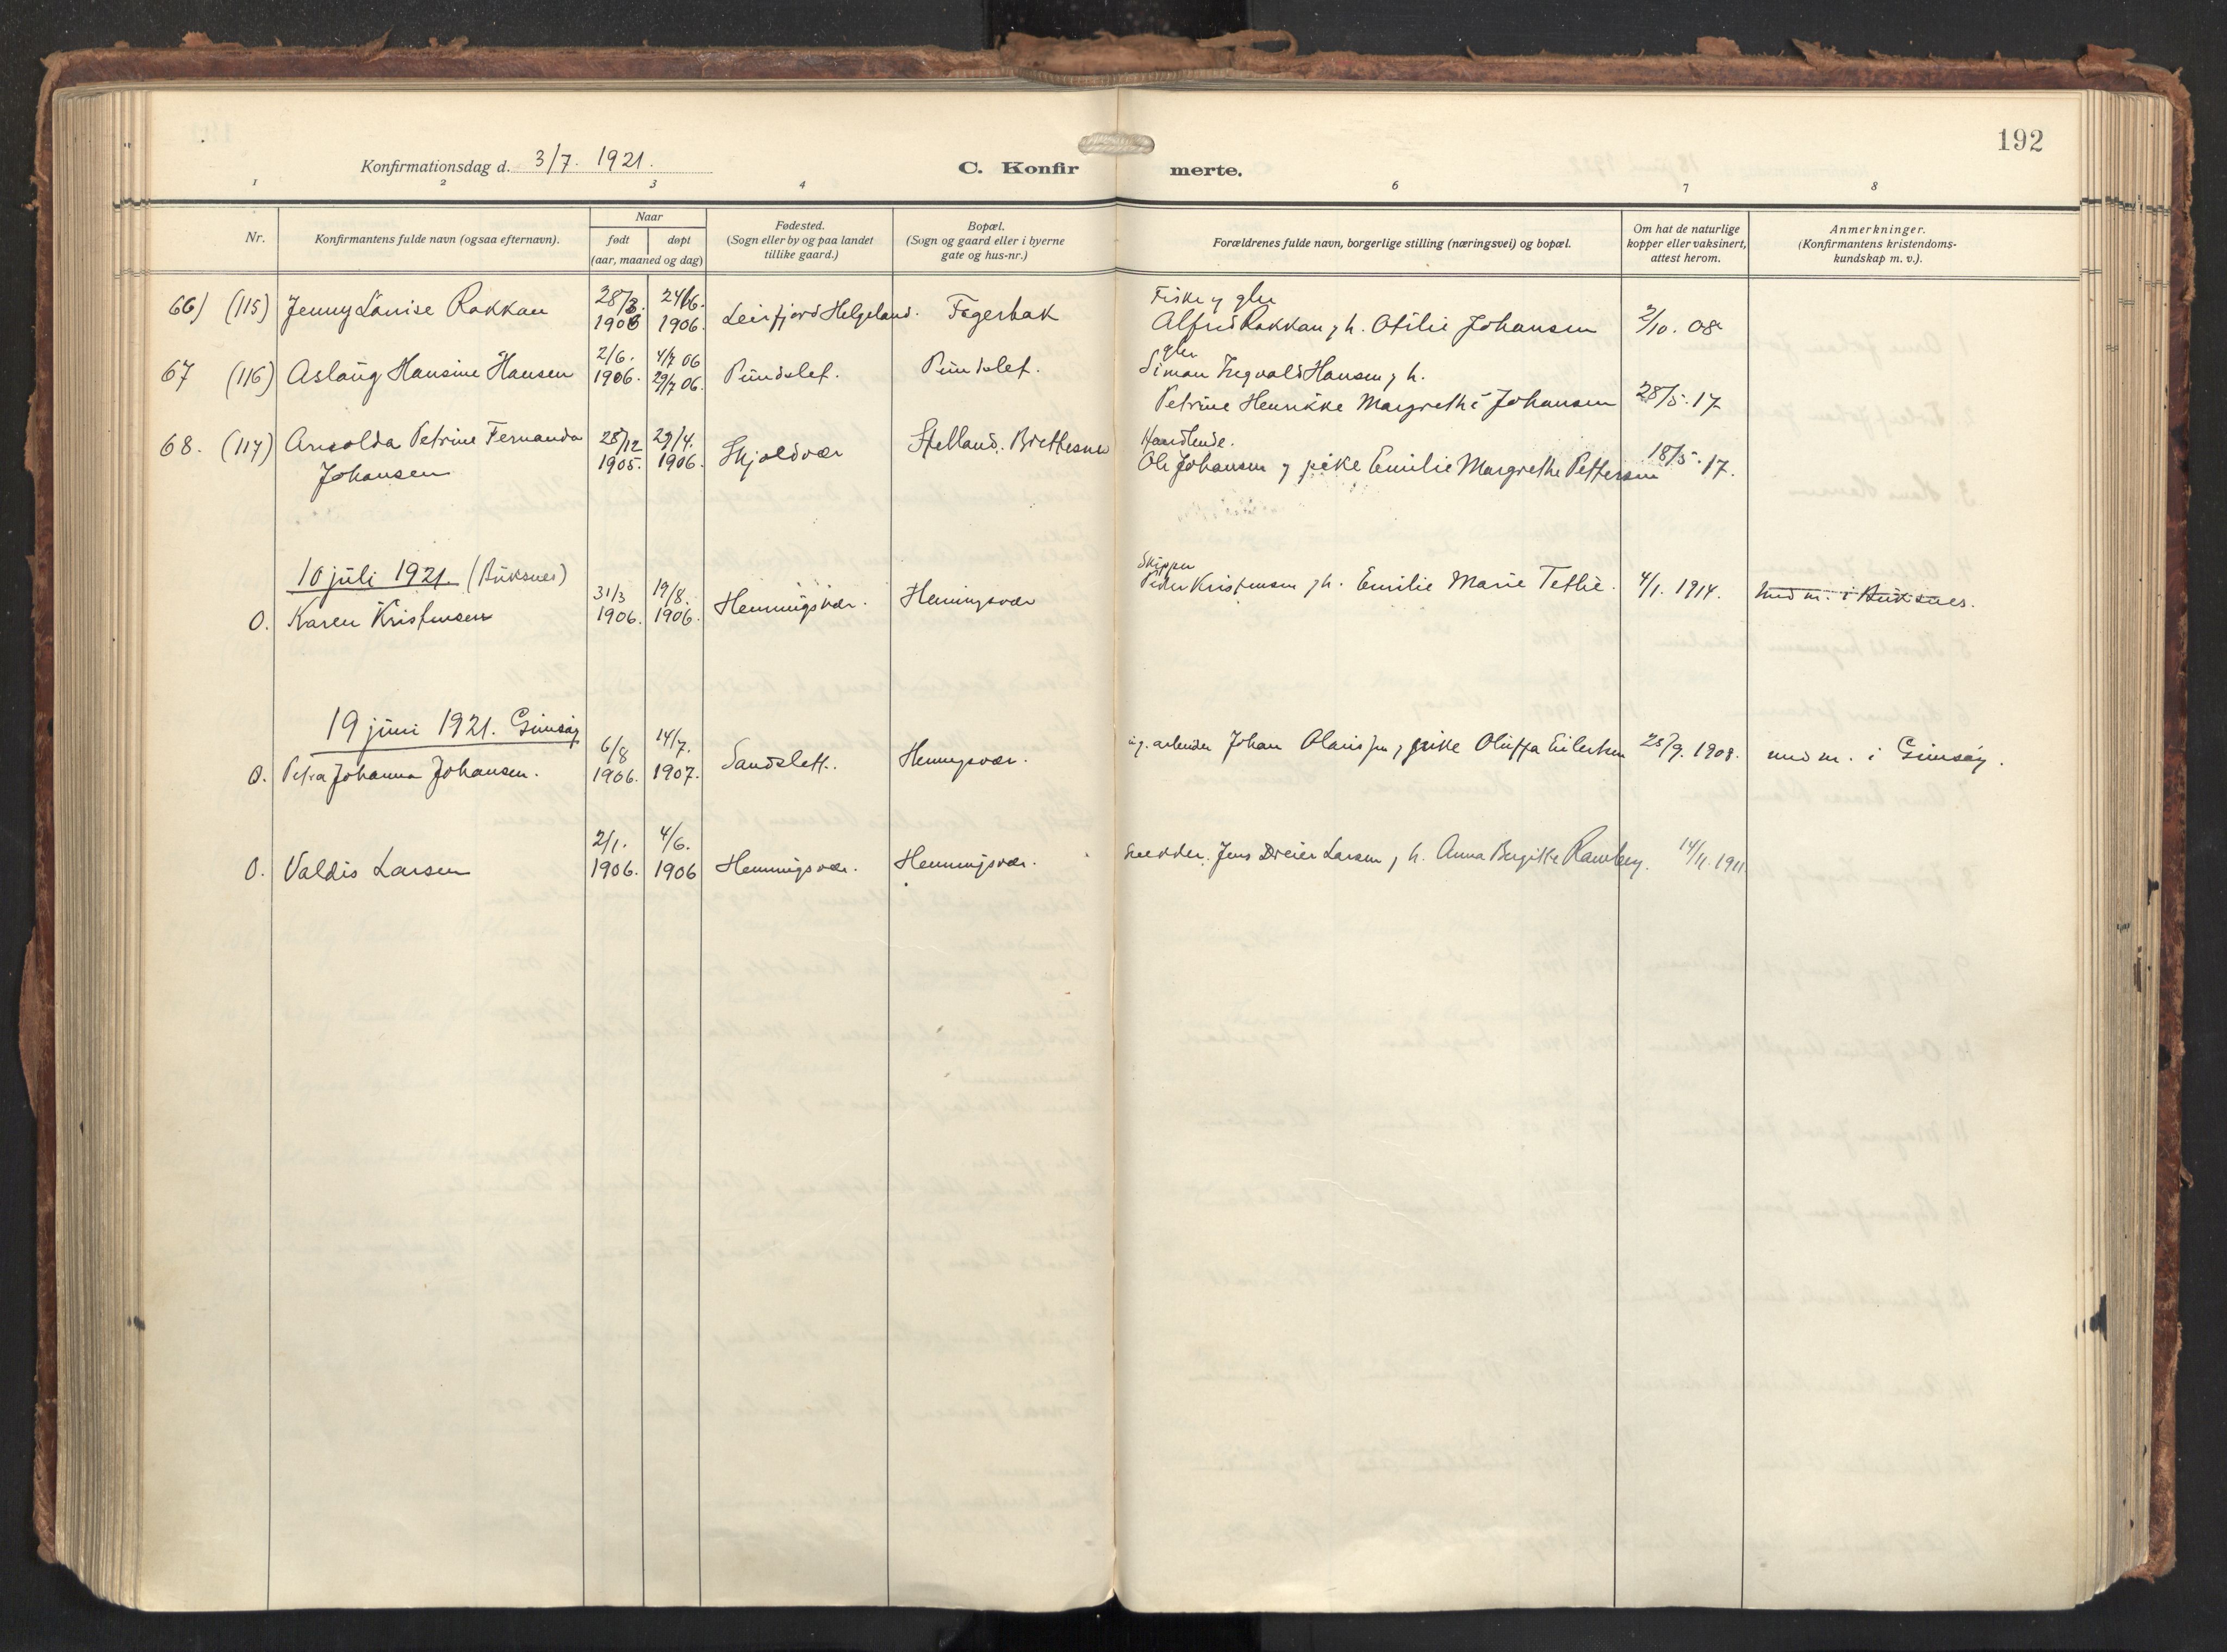 192
Konfirmationsdag d. 3/7. 1921.
C. Konfir merte.
1 2 3 4 6 7 8
Nr.
Konfirmantens fulde navn (ogsaa efternavn).
Naar
født døpt
(aar, maaned og dag)
Fødested.
(Sogn eller by og paa landet
tillike gaard.)
Bopæl.
(Sogn og gaard eller i byerne
gate og hus-nr.)
Forældrenes fulde navn, borgerlige stilling (næringsvei) og bopæl.
Om hat de naturlige
kopper eller vaksinert,
attest herom.
Anmerkninger.
(Konfirmantens kristendoms-
kundskap m. v.).
Fisker g gbr
66) (115) Jenny Lovise Rakkan 28/3. 1906 24/6. 1906. Leirfjord Helgeland. Fagerbak Alfred Rakkan g h. Otilie Johansen 2/10. 08
gbr
67 (116) Aslaug Hansine Hansen 2/6. 1906. 4/7 06 29/7 06. Pundslet. Pundslet. Simon Ingvald Hansen g h.
Petrine Henrikke Margrethe Johansen 28/5. 17
Handlende.
68. (117) Arnolda Petrine Fernanda 28/12 1905. 29/4. 1906. Skjoldvær Helland. Brettesnes Ole Johansen g pike Emilie Margrethe Pettersen 18/5. 17.
Johansen
10 juli 1921. (Buksnes)
Skipper
O. Karen Kristensen 31/3 1906. 19/8. 1906. Henningsvær. Henningsvær Peder Kristensen g h. Emilie Marie Tetlie. 4/1. 1914. und m. i Buksnes.
19 juni 1921. Gimsøy
O. Petra Johanna Johansen. 6/8 1906. 14/7. 1907. Sandslett. Henningsvær. arbeider Johan Olaussen g pike Oluffa Eilertsen 28/9. 1908. und m. i Gimsøy.
O. Valdis Larsen 2/1. 1906. 4/6. 1906 Henningsvær. Henningsvær. Snedker. Jens Dreier Larsen g h. Anna Bergitte Ramberg. 14/11. 1911